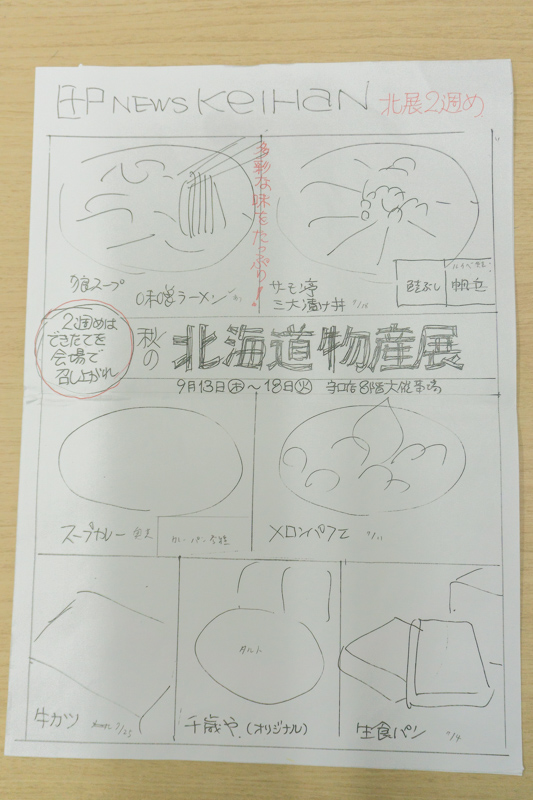 NEWS KEIHAN 北展2週め
多彩な味をたっぷり!
スープ
味噌ラーメン
サーモン
三大漬け丼
2週めは
できたてを
会場で
召し上がれ
秋の 北海道物産展
9月13日㊍〜18日㊋ 守口店8階大催事場
スープカレー
メロンパフェ
タルト
牛カツ
千歳や.(オリジナル)
生食パン